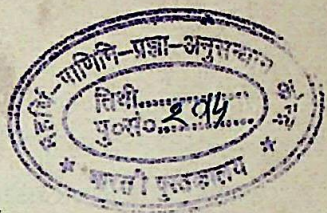 महर्षि-पाणिनि-प्रज्ञा-अनुसन्धान
तिथी..............
पु०सं०..२१५..........
* पुस्तकालय *